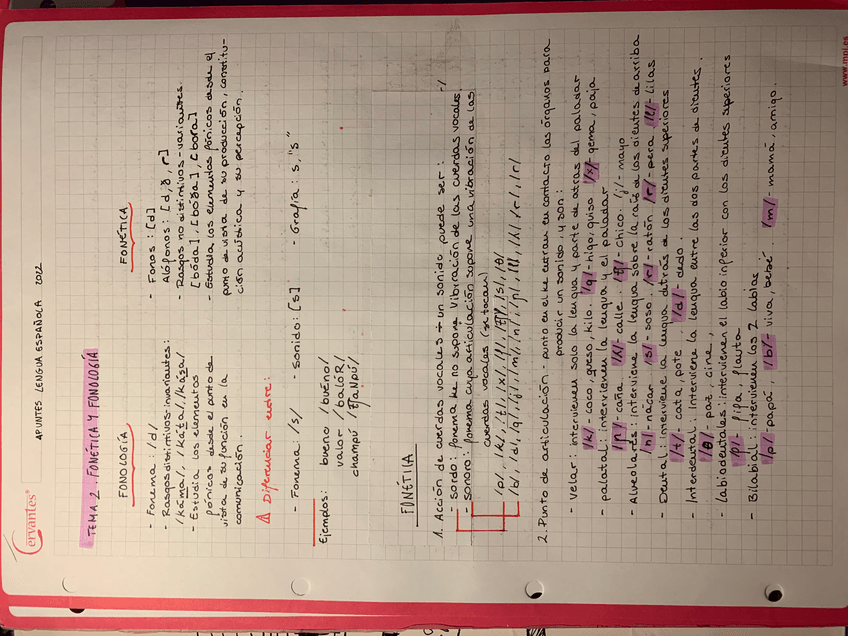 cervantes®
APUNTES LENGUA ESPAÑOLA 2022
TEMA 2. FONÉTICA Y FONOLOGÍA
FONOLOGÍA
- Fonema: /d/
- Rasgos distimivos-invariantes:
/káma/, /káta/, /káza/
- Estudia los elementos
fónicos desde el punto de
vista de su función en la
comunicación.
FONÉTICA
- Fonos: [d]
Alófonos: [d, ð, r]
- Rasgos no distimivos-variantes.
[bóda], [bóða], [bora]
- Estudia los elementos fónicos desde el
punto de vista de su producción, constitu-
ción acústica y su percepción.
Diferenciar entre:
- Fonema: /s/ - Sonido: [s] - Grafía: s, "s"
Ejemplos: bueno /buéno/
valor /balóR/
champú
FONÉTICA
1. Acción de cuerdas vocales → un sonido puede ser:
- sordo: fonema ke no supone vibración de las cuerdas vocales.
- sonoro: fonema cuya articulación supone una vibración de las
cuerdas vocales (se tocan)
/p/, /k/, /t/, /x/, /f/, /tʃ/, /s/, /θ/
/b/, /d/, /g/, /j/, /m/, /n/, /ɲ/, /l/, /ʎ/, /r/, /r/
2. Punto de articulación - punto en el ke entran en contacto los órganos para
producir un sonido, y son:
- Velar: intervienen solo la lengua y parte de atras del paladar
/k/- coco, queso, kilo. /g/- higo, guiso /x/- gema, paja
- palatal: intervienen la lengua y el paladar
/ɲ/- caña /ʎ/- calle. /tʃ/- chico. /j/- mayo
- Alveolares: interviene la lengua sobre la raíz de los dientes de arriba
/n/- nácar /s/- soso. /r/- ratón /r/- pera /l/- lilas
- Dental: interviene la lengua detrás de los dientes superiores
/t/- cata, pote. /d/- dedo.
- Interdental: interviene la lengua entre las dos partes de dientes.
/θ/- paz, cine,
- Labiodentales: intervienen el labio inferior con los dientes superiores
/f/- fifa, flauta
- Bilabial: intervienen los 2 labios.
/p/- papá, /b/- viva, bebé. /m/- mamá, amigo.
www.mpl.es